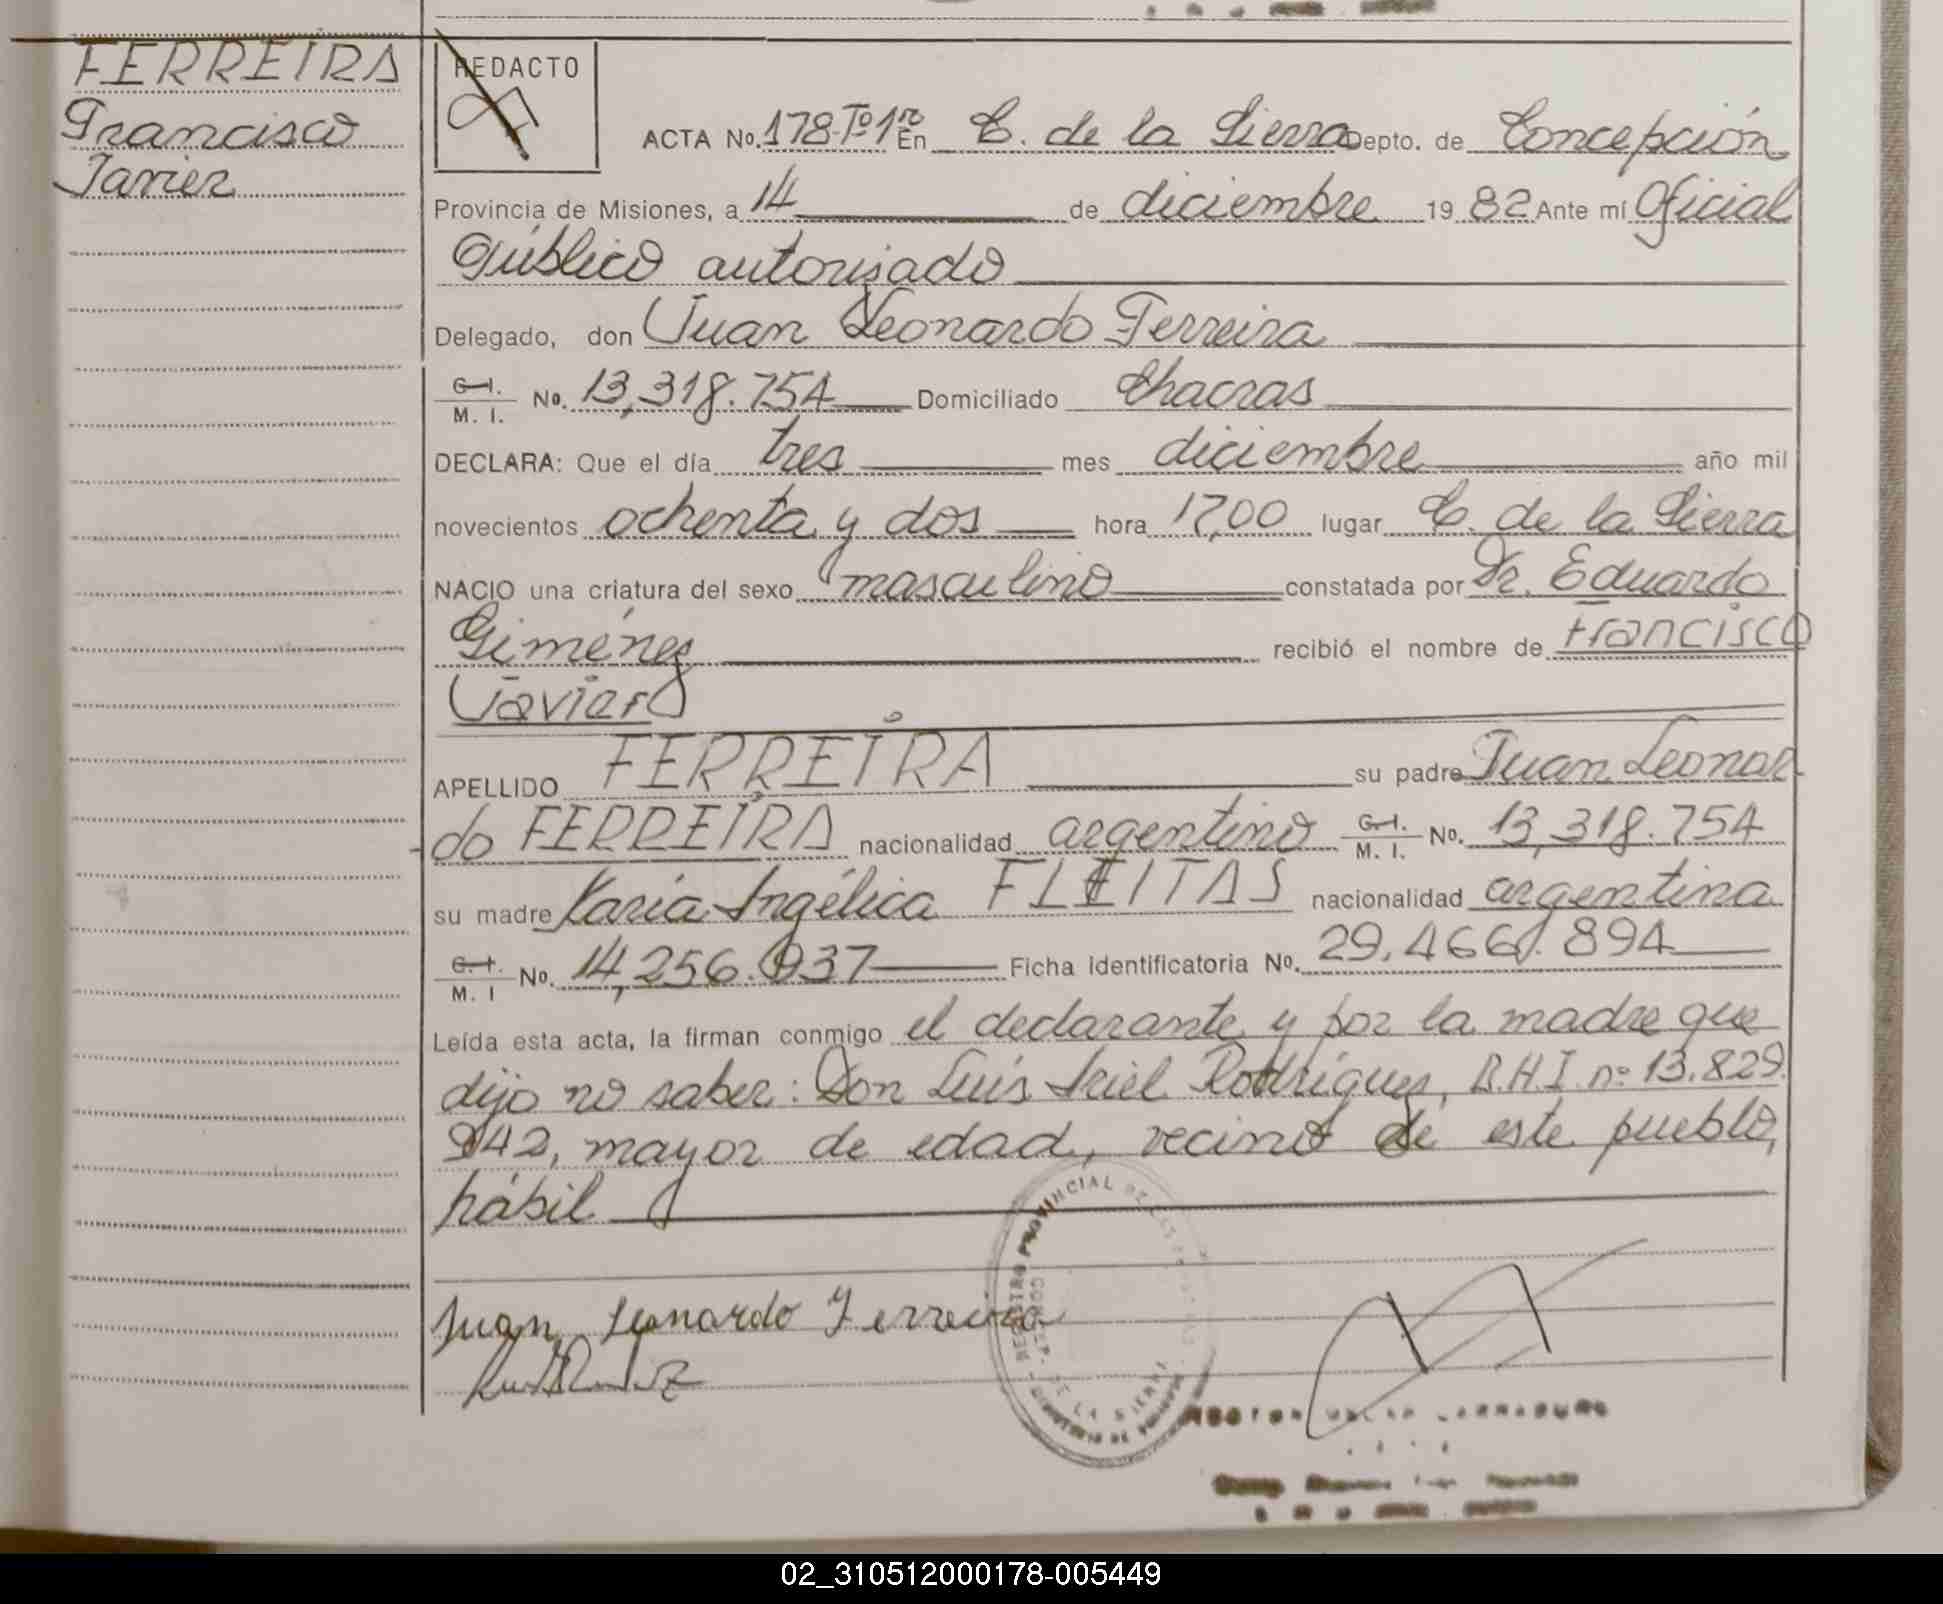 FERREIRA
Francisco
Javier
REDACTO
ACTA No. 178-Tº1º En C. de la Sierra Depto. de Concepción
Provincia de Misiones, a 14 de diciembre 19 82 Ante mí Oficial
Público autorizado
Delegado, don Juan Leonardo Ferreira
C.I. M. I. No. 13,318.754 Domiciliado Chacras
DECLARA: Que el día tres mes diciembre año mil
novecientos ochenta y dos hora 17,00 lugar C. de la Sierra
NACIO una criatura del sexo masculino constatada por Dr. Eduardo
Giménez recibió el nombre de Francisco
Javier
APELLIDO FERREIRA su padre Juan Leonar
do FERREIRA nacionalidad argentino C.I. M. I. No. 13,318.754
su madre María Angélica FLEITAS nacionalidad argentina
C.I. M. I No. 14,256.937 Ficha identificatoria No. 29.466.894
Leída esta acta, la firman conmigo el declarante y por la madre que
dijo no saber: Don Luís Ariel Rodríguez, D.N.I. nº 13.829.
942, mayor de edad, vecino de este pueblo,
hábil
Juan Leonardo Ferreira
REGISTRO PROVINCIAL DE LAS
DE LA SIERRA
02_310512000178-005449